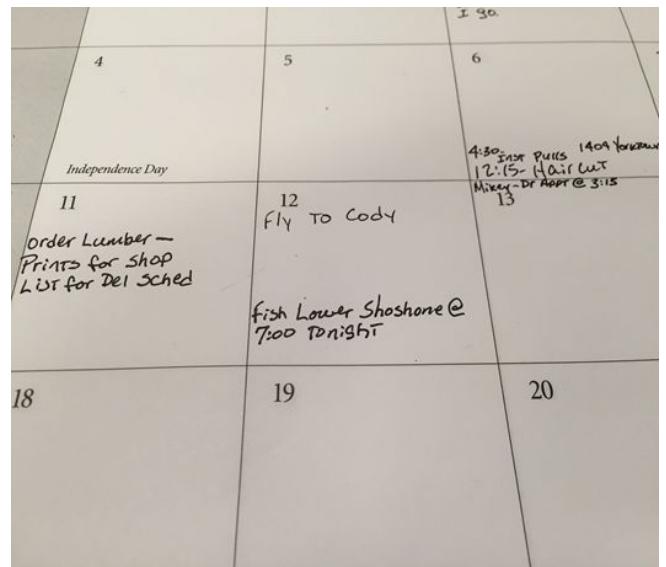 I go.
4
5
6
Independence Day
4:30- Inst Pulls 1409
12:15- Haircut
Mikey-Dr Appt @ 3:15
11
Order Lumber —
Prints for Shop
List for Del Sched
12
Fly To Cody
Fish Lower Shoshone @
7:00 Tonight
13
18
19
20